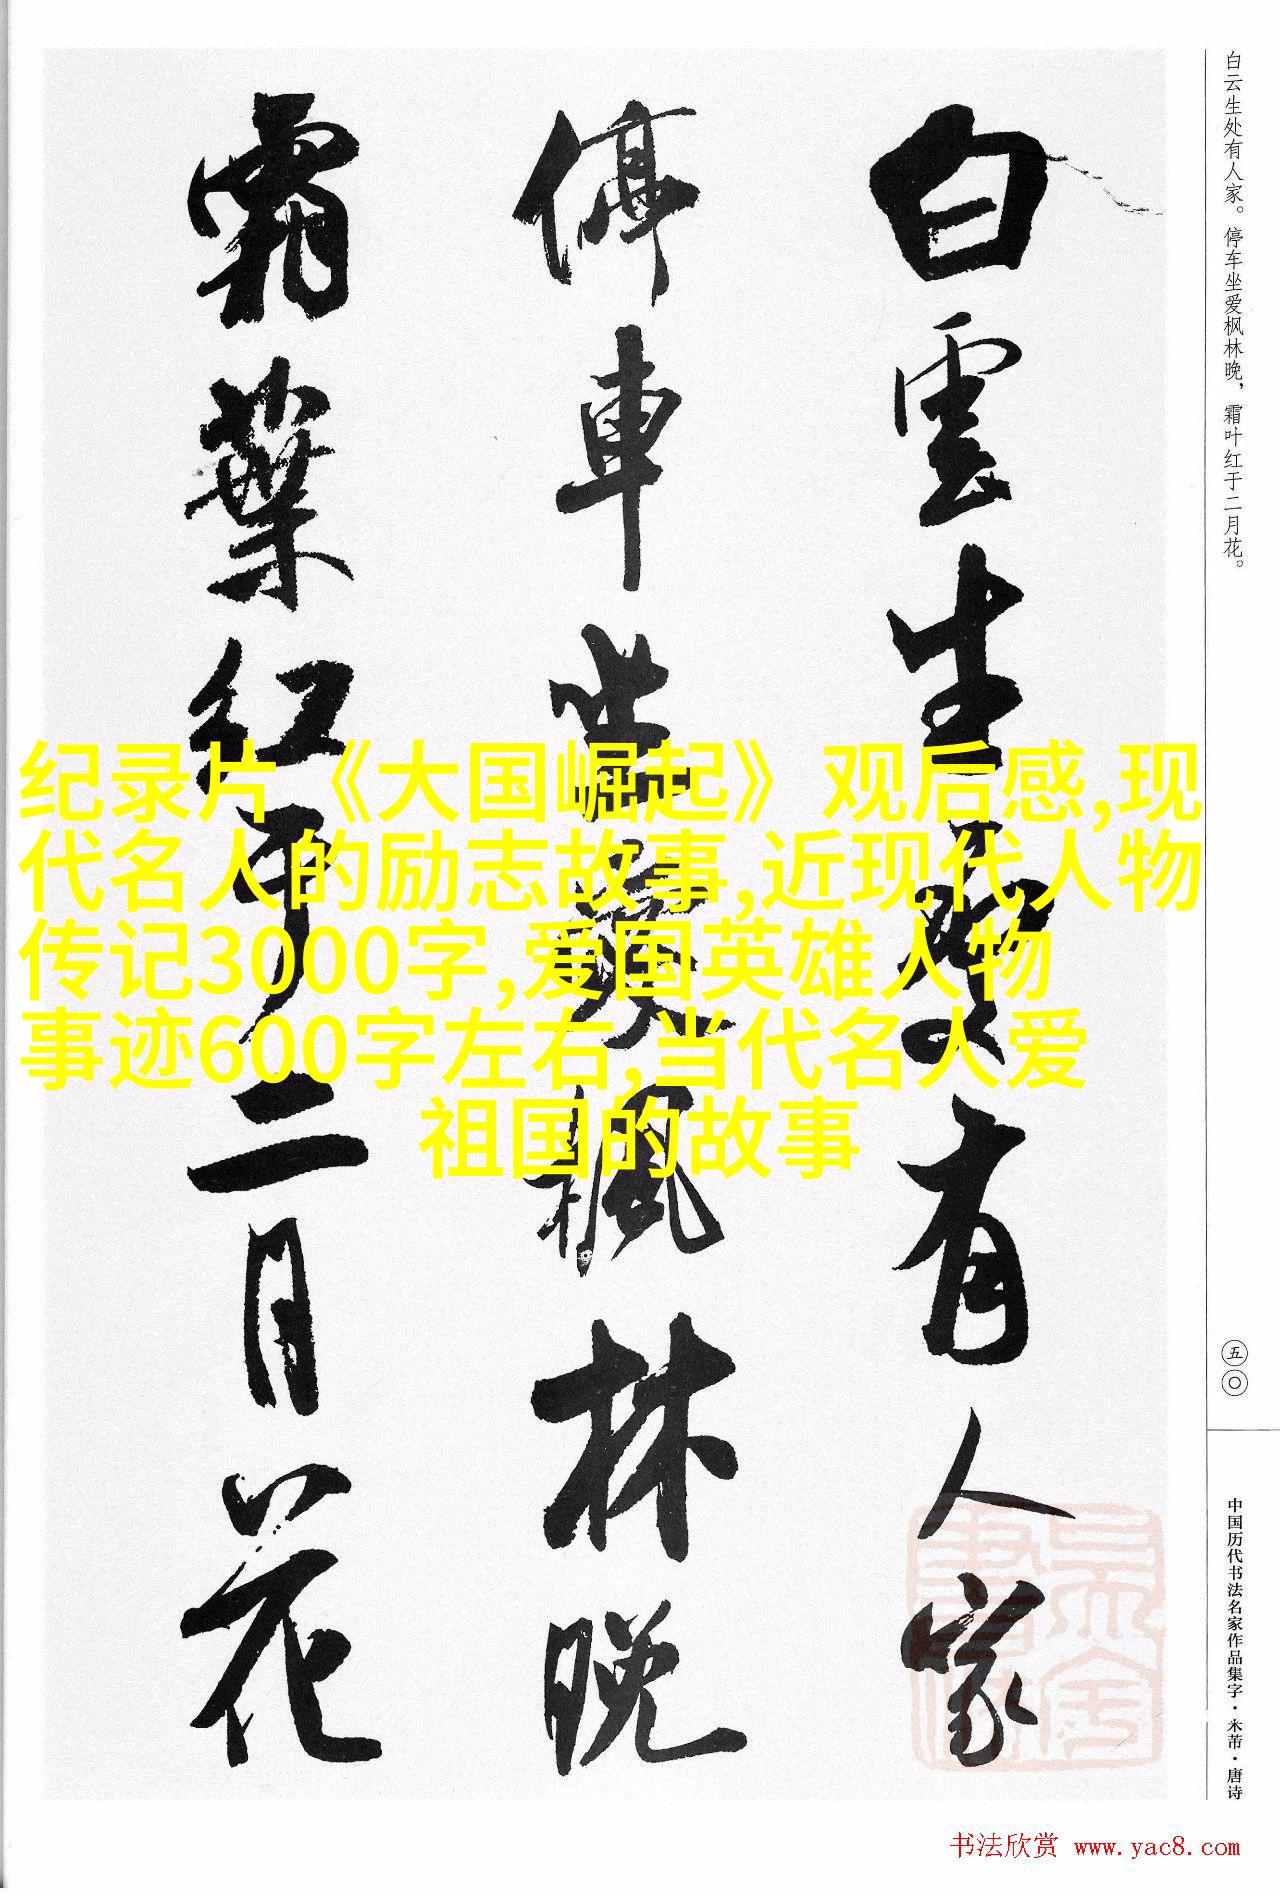 白雲生處有人家
停車坐愛楓林晚
霜葉紅于二月花
白云生处有人家。停车坐爱枫林晚，霜叶红于二月花。
五〇
中国历代书法名家作品集字·米芾·唐诗
纪录片《大国崛起》观后感,现
代名人的励志故事,近现代人物
传记3000字,爱国英雄人物
事迹600字左右,当代名人爱
祖国的故事
书法欣赏 www.yac8.com